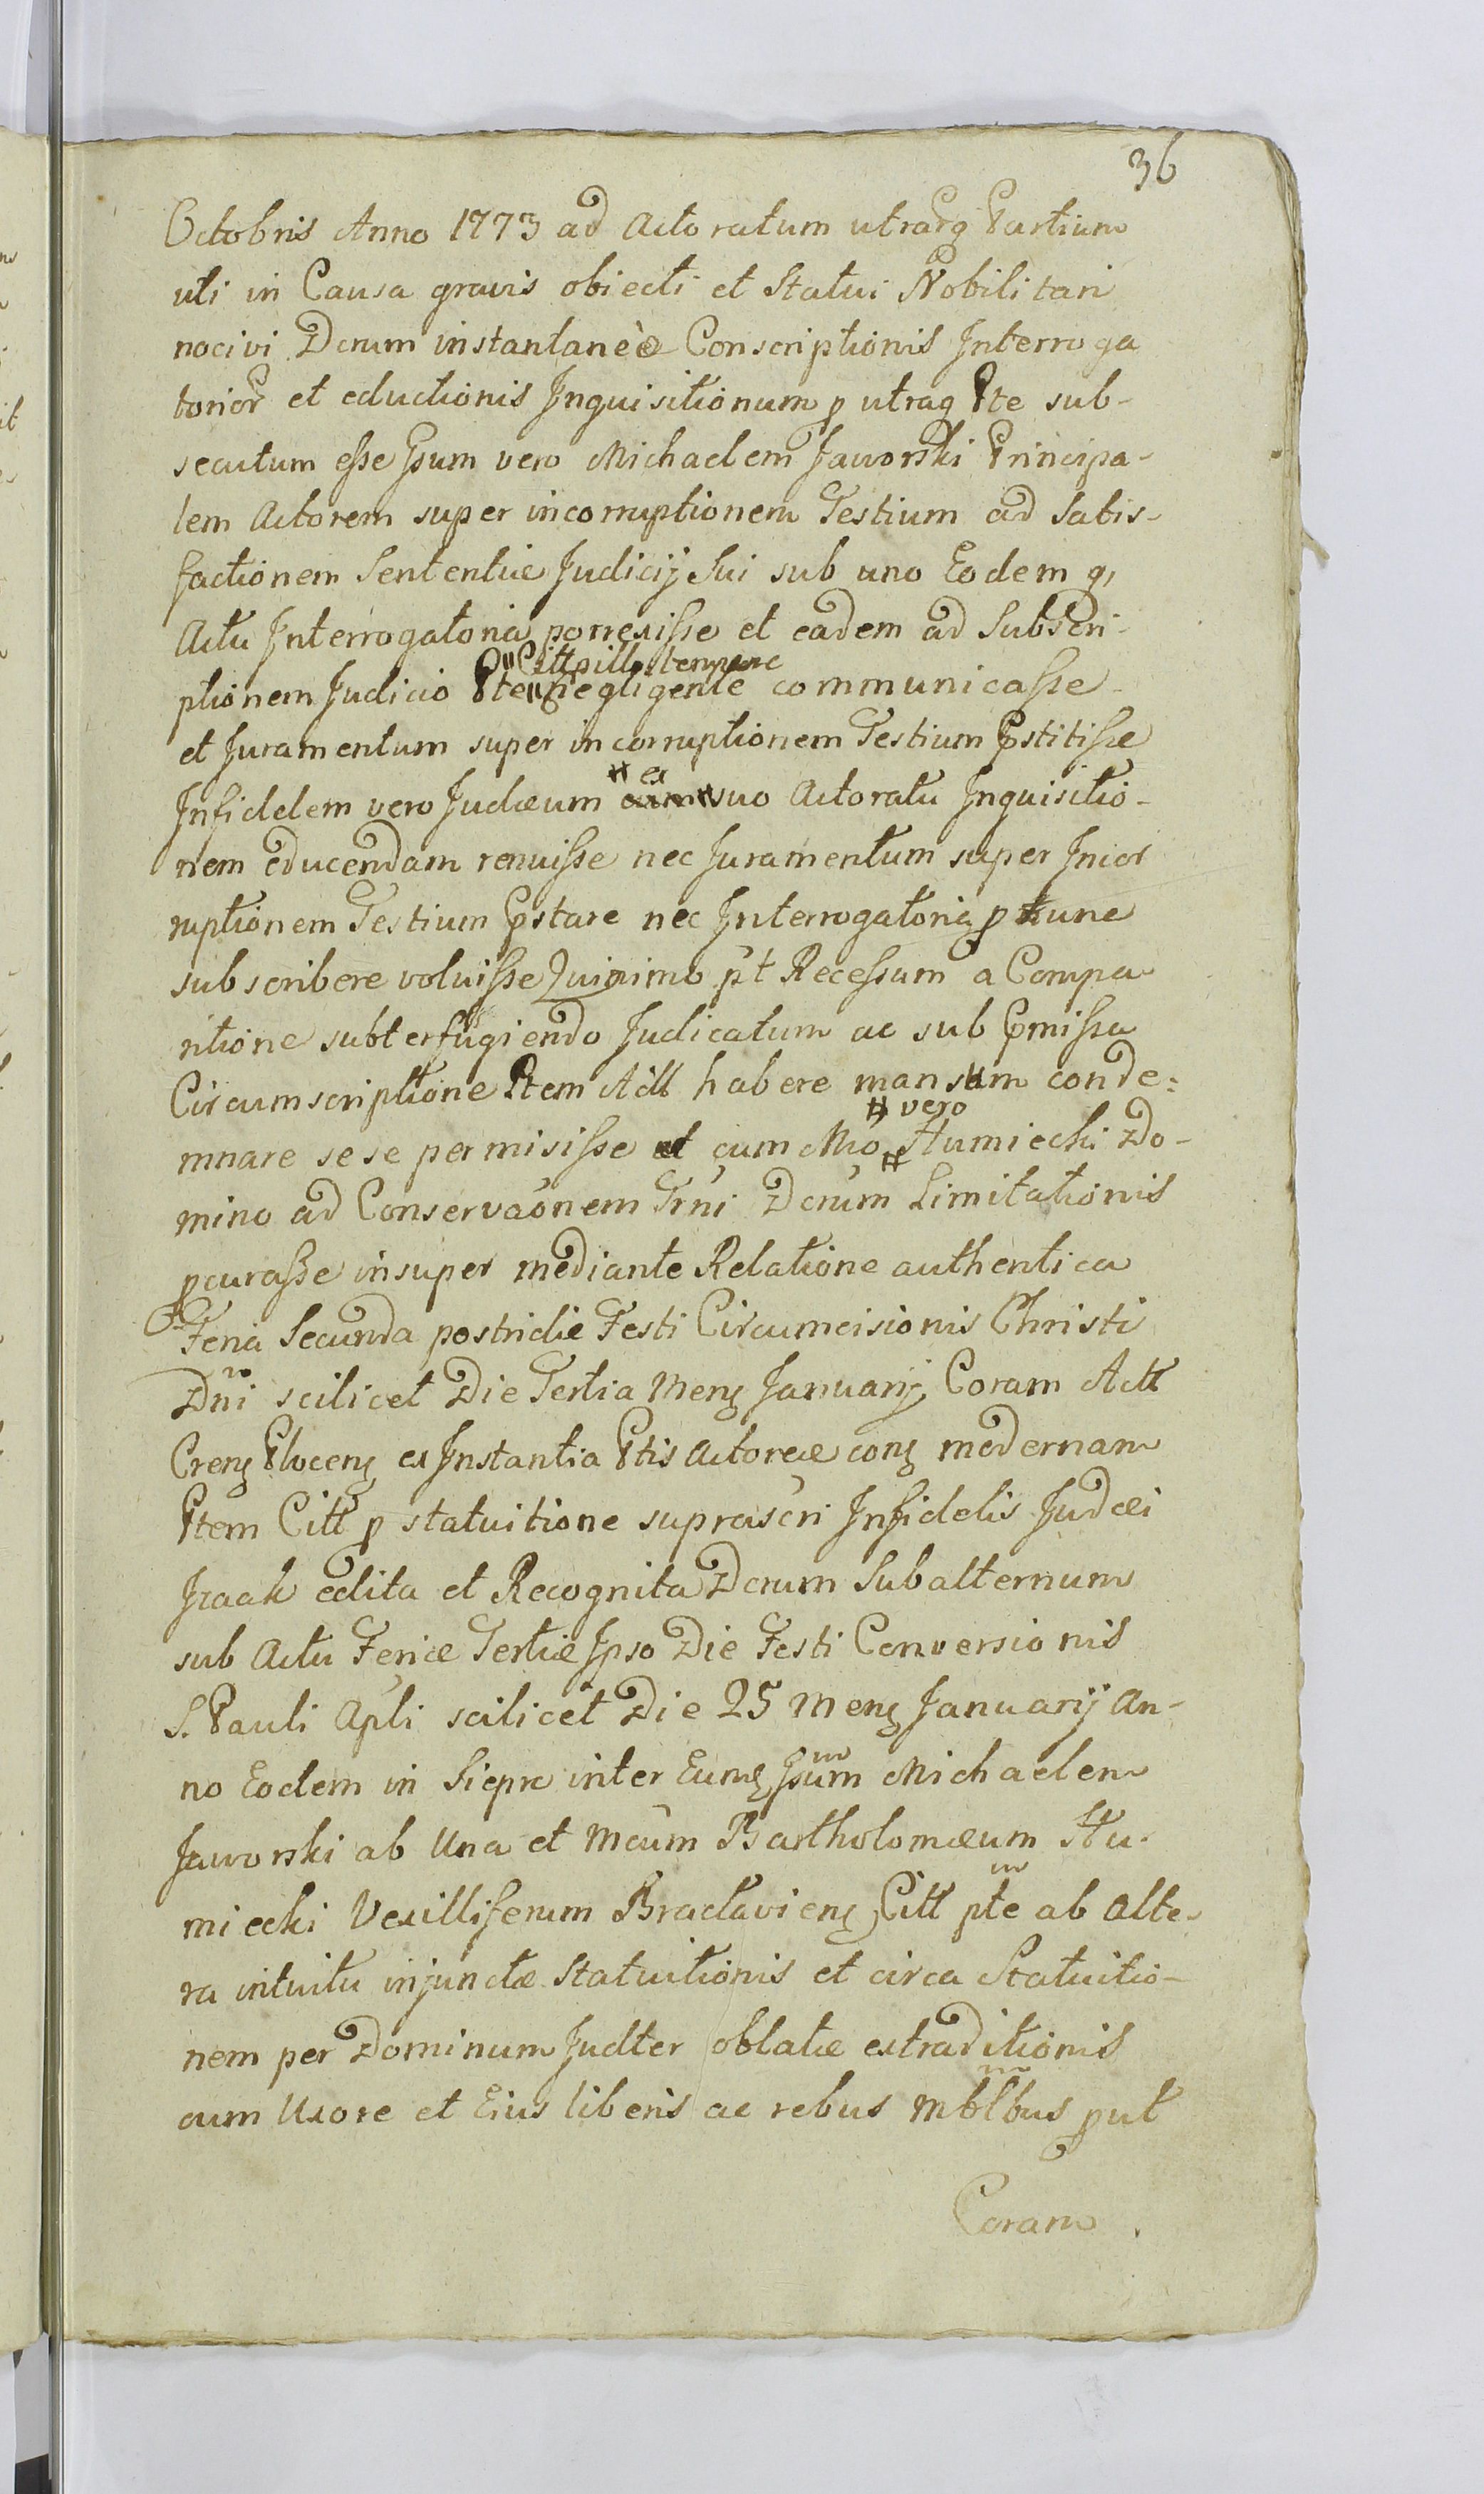 36
Octobris Anno 1773 ad Actoratum utrarq Partium
uti in Causa gravis obiecti et Statui Nobilitari
nocivi Dcrum instantaneè Conscriptionis Interroga
torior et eductionis Inquisitionum p utraq Pte sub-
secutum esse Gsum vero Michaelem Jaworski Principa-
lem Actorem super incorruptionem Testium ad Satis-
factionem Sententiæ Judicij Sui sub uno Eodem q,
Actu Interrogatoria porrexisse et eadem ad Subscri-
Citt p illo tempore
ptionem Judicio Pte negligente communicasse
et Juramentum super incorruptionem Testium Pstitisse
# ex
Infidelem vero Judæum cum # suo Actoratu Inquisitio-
nem educendam renuisse nec Juramentum super Incor
ruptionem Testium Pstare nec Interrogatoria p tunc
subscribere voluisse Quinimo pt Recessum a Compa
ritione subterfugiendo Judicatum ac sub Pmissa
Circumscriptione Ptem Act habere mansum conde:
# vero
mnare sese permisisse et cum Mco # Humiecki Do-
mino ad Conservaonem Trni Dcrum Limitationis
pcurasse insuper mediante Relatione authentica
Feria Secunda postridie Festi Circumcisionis Christi
Dni scilicet Die Tertia Mens Januarij Coram Actt
Crens Plocens ex Instantia Ptis Actoreæ cons modernam
Ptem Citt p statuitione suprascri Infidelis Judæi
Jzaak edita et Recognita Dcrum Subalternum
sub Actu Feriæ Tertiæ Ipso Die Festi Conversionis
S. Pauli Apli scilicet Die 25 Mens Januarij An-
no Eodem in Siepre inter Eumq Gsum Michaelem
Jaworski ab Una et Mcum Bartholomæum Hu-
miecki Vexilliferum Braclaviens Citt pte ab Alte-
ra intuitu injunctæ Statuitionis et circa Statuitio-
nem per Dominum Judter oblatæ extraditionis
cum Uxore et Eius liberis ac rebus Mblbus put
Coram